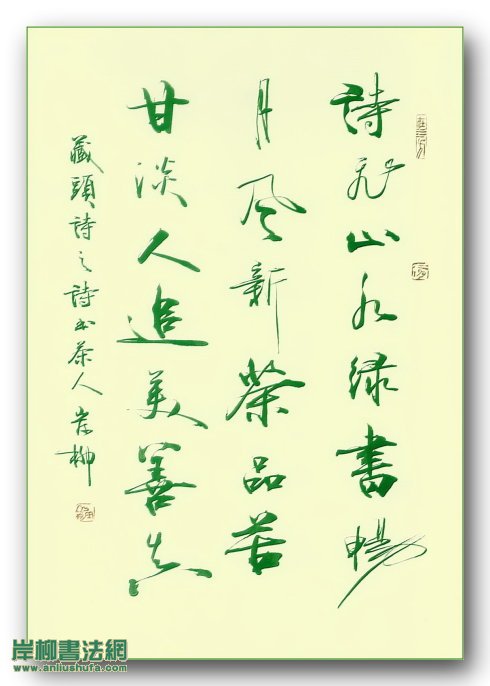 詩山水绿書暢
月風新茶品苦
甘淡人追美善真
藏頭詩之詩书茶人 岸柳
岸柳書法網
www.anliushufa.com